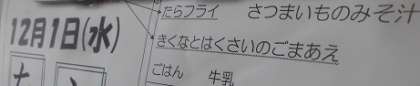 たらフライ さつまいものみそ汁
12月1日(水)
きくなとはくさいのごまあえ
ごはん 牛乳